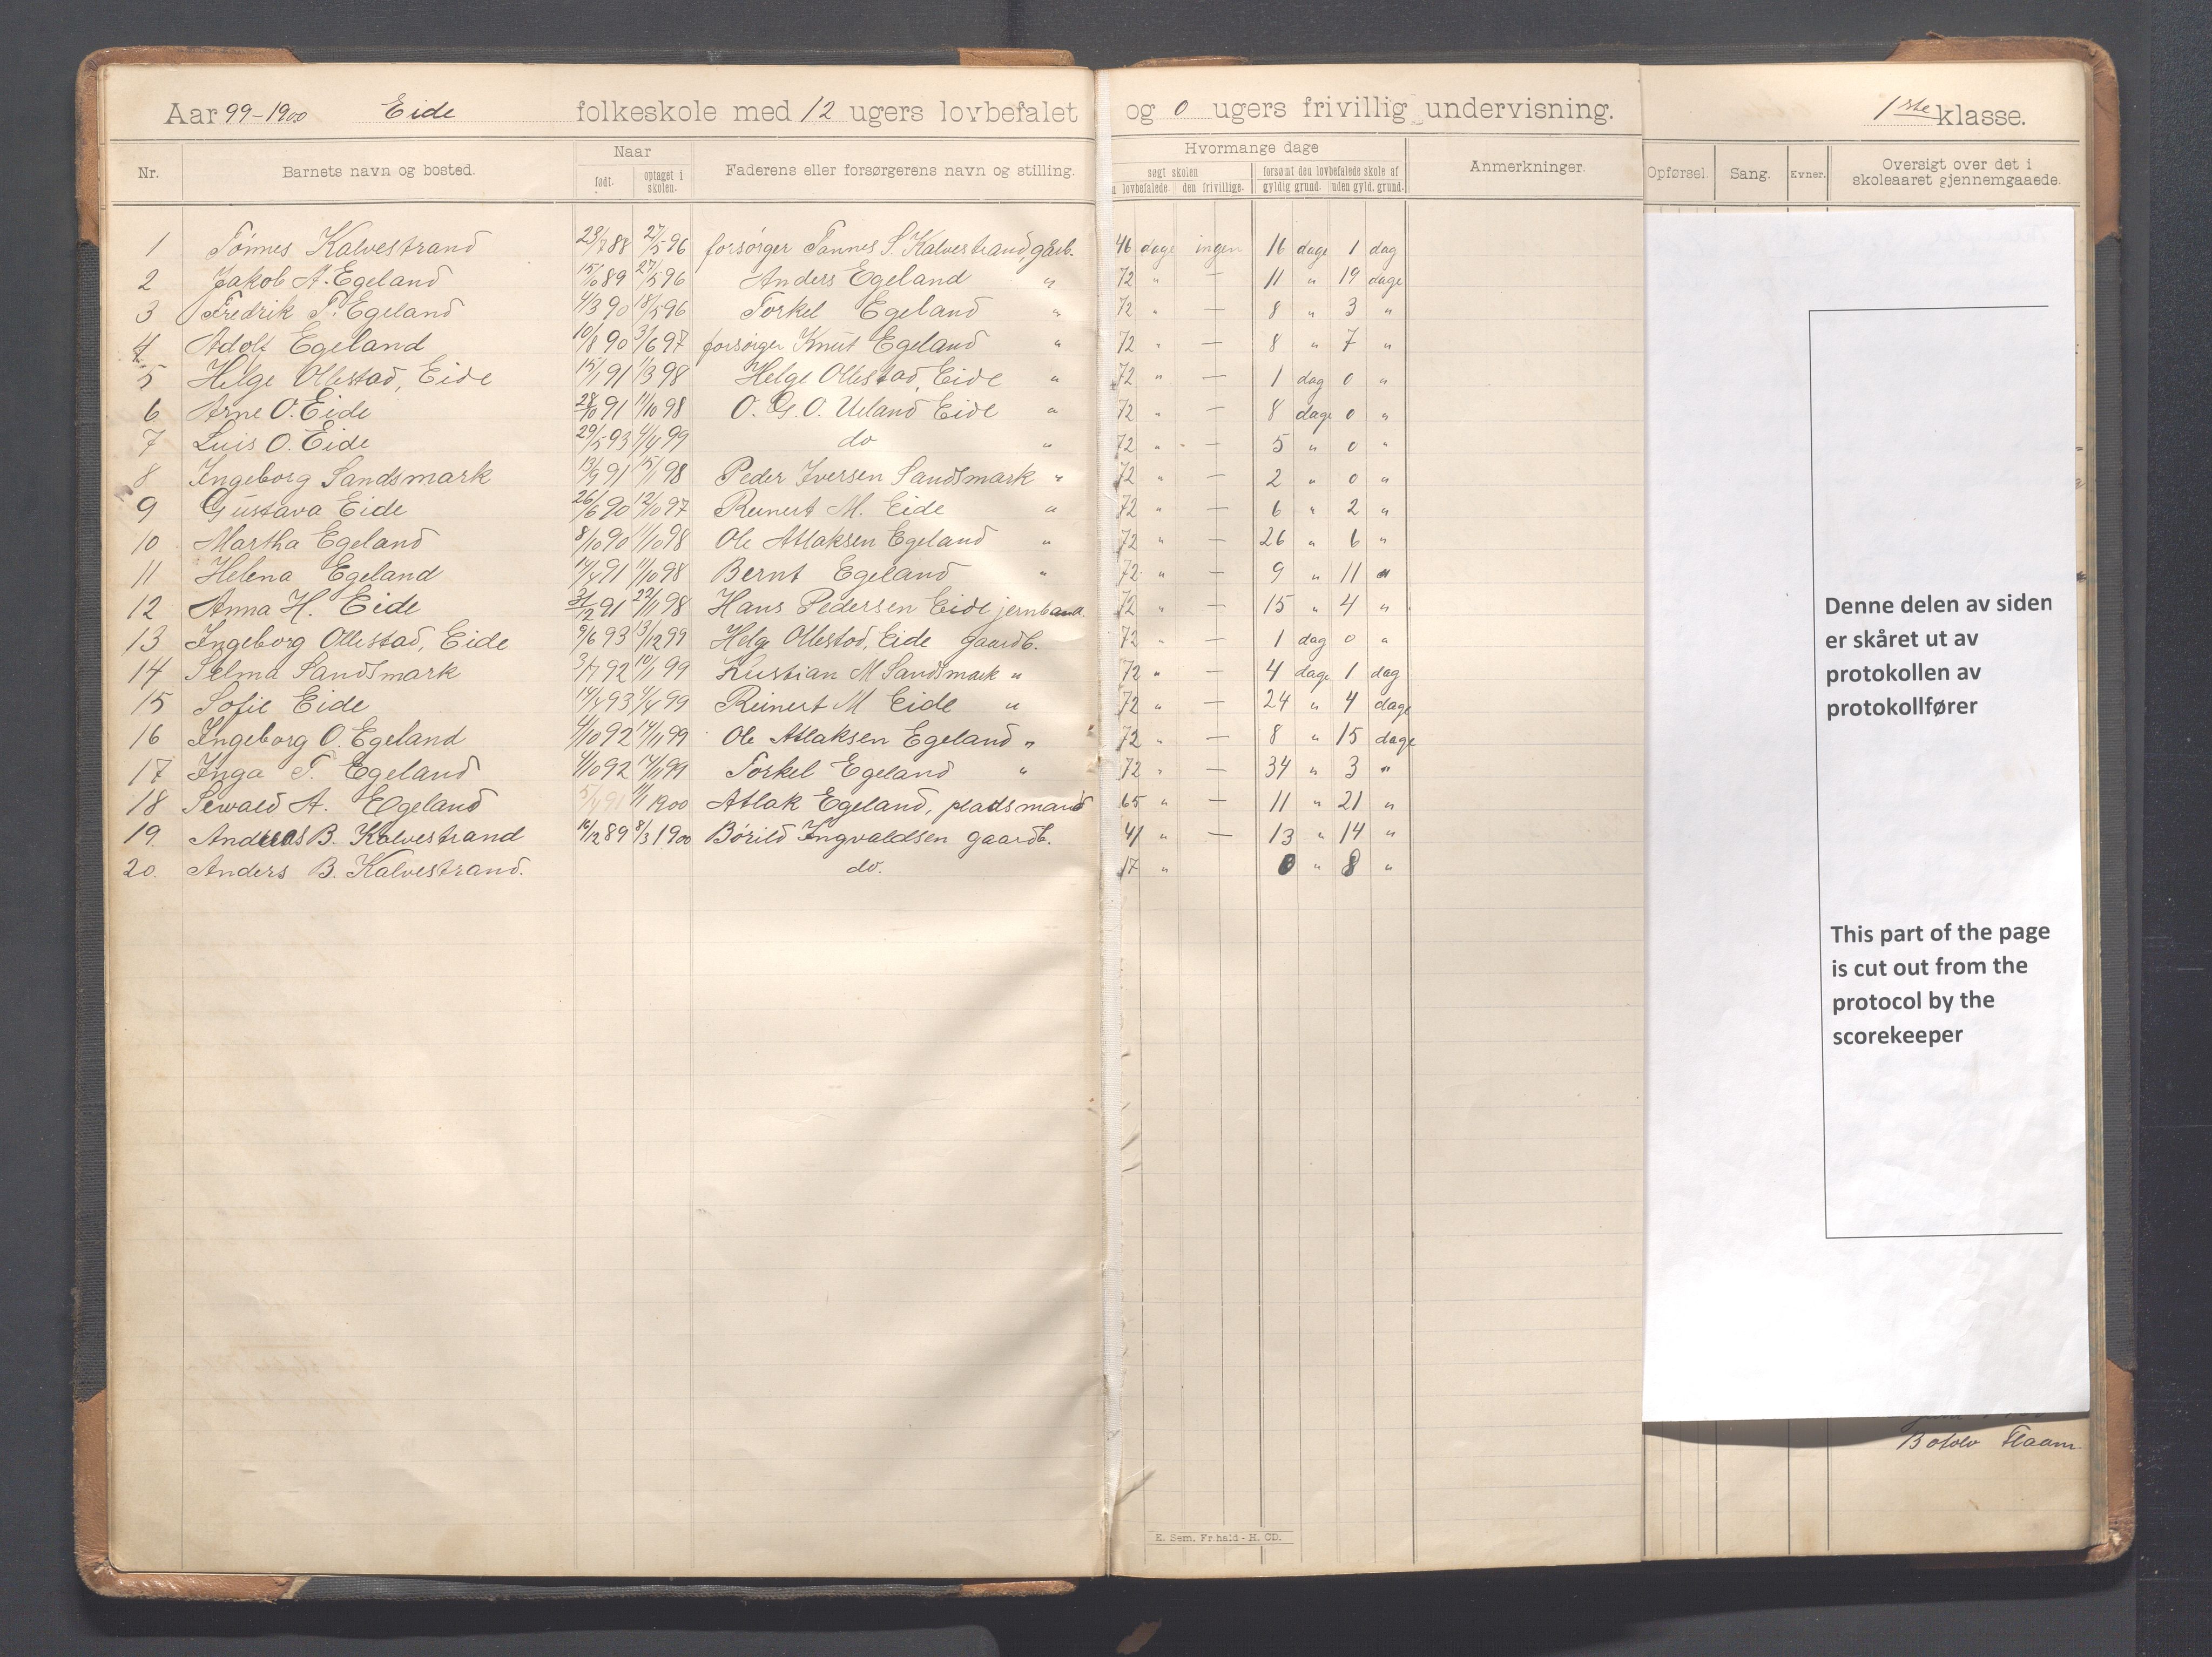 Aar 99-1900 Eide folkeskole med 12 ugers lovbefalet og 0 ugers frivillig undervisning. 1ste klasse.
Nr. Barnets navn og bosted. Naar født. optaget i skolen. Faderens eller forsørgerens navn og stilling. Hvormange dage søgt skolen n lovbefalede. den frivillige. forsømt den lovbefalede skole af gyldig grund. uden gyld. grund. Anmerkninger. Opførsel. Sang. Evner. Oversigt over det i skoleaaret gjennemgaaede.
1 Tönnes Kalvestrand 23/7 88 27/5 96 forsörger Tønnes S. Kalvestrand, gårb. 46 dage ingen 16 dage 1 dag
2 Jakob A. Egeland 15/10 89 27/5 96 Anders Egeland " 72 " — 11 " 19 dage
3 Fredrik T. Egeland 4/3 90 18/5 96 Torkel Egeland " 72 " — 8 " 3 "
4 Adolf Egeland 10/8 90 3/6 97 forsörger Knut Egeland " 72 " — 8 " 7 "
5 Helge Ollestad, Eide 15/1 91 1/3 98 Helge Ollestad, Eide " 72 " — 1 dag 0 "
6 Arne O. Eide 28/10 91 11/10 98 O. G. O. Ueland Eide " 72 " — 8 dage 0 "
7 Luis O. Eide 29/5 93 4/4 99 do " 72 " — 5 " 0 "
8 Ingeborg Sandsmark 13/9 91 15/1 98 Peder Iversen Sandsmark " 72 " — 2 " 0 "
9 Gustava Eide 26/6 90 12/10 97 Reinert M. Eide " 72 " — 6 " 2 "
10 Martha Egeland 8/10 90 11/10 98 Ole Atlaksen Egeland " 72 " — 26 " 6 "
11 Helena Egeland 14/4 91 11/10 98 Bernt Egeland " 72 " — 9 " 11 "
12 Anna H. Eide 31/12 91 22/11 98 Hans Pedersen Eide jernbaa. 72 " — 15 " 4 "
13 Ingeborg Ollestad, Eide 9/6 93 13/12 99 Helge Ollestad, Eide gaardb. 72 " — 1 dag 0 "
14 Selma Sandsmark 3/7 92 10/1 99 Kristian M Sandsmark " 72 " — 4 dage 1 dag
15 Sofie Eide 14/4 93 4/4 99 Reinert M Eide " 72 " — 24 " 4 dage
16 Ingeborg O. Egeland 4/10 92 14/11 99 Ole Atlaksen Egeland " 72 " — 8 " 15 dage
17 Inga T. Egeland 4/10 92 14/11 99 Torkel Egeland " 72 " — 34 " 3 "
18 Sewald A. Egeland 5/4 91 11/1 1900 Atlak Egeland, pladsmand 65 " — 11 " 21 "
19. Andreas B. Kalvestrand 16/12 89 8/3 1900 Börild Ingvaldsen gaardb. 41 " — 13 " 14 "
20. Anders B. Kalvestrand. do. 17 " 0 " 8 "
Denne delen av siden
er skåret ut av
protokollen av
protokollfører
This part of the page
is cut out from the
protocol by the
scorekeeper
Botolv Flaam
E. Sem, Fr.hald - H. CD.